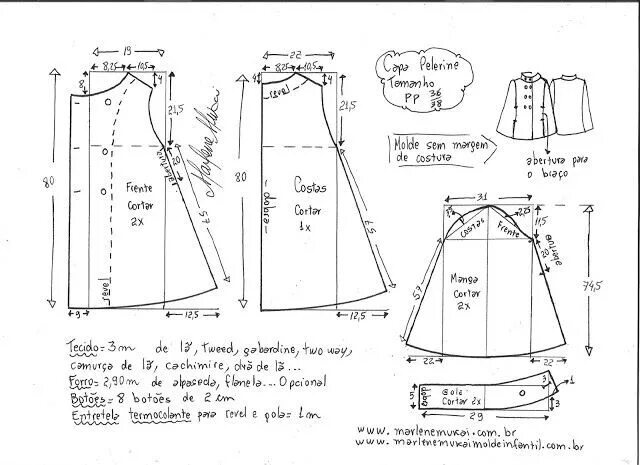 19
8,25
10,5
8
4
21,5
80
abertura
20
Frente
Cortar
2x
57
revel
9
12,5
Marlene Mukai
22
8,25
10,5
4
4
revel
21,5
80
dobra
Costas
Cortar
1x
57
12,5
Capa Pelerine
Tamanho
PP 36
38
Molde sem margem
de costura
abertura para
o braço
31
costas
Frente
2,25
11,5
abertura
57
Manga
Cortar
2x
74,5
22
22
Tecido= 3m de lã, tweed, gabardine, two way,
camurça de lã, cachimire,
Forro= 2,90m de alpaseda, flanela... Opcional
Botões= 8 botões de 2 cm
Entretela termocolante para revel e gola= 1m
5
dobra
Gola
Cortar 2x
3
1
3
29
www.marlenemukai.com.br
www.marlenemukaimoldeinfantil.com.br